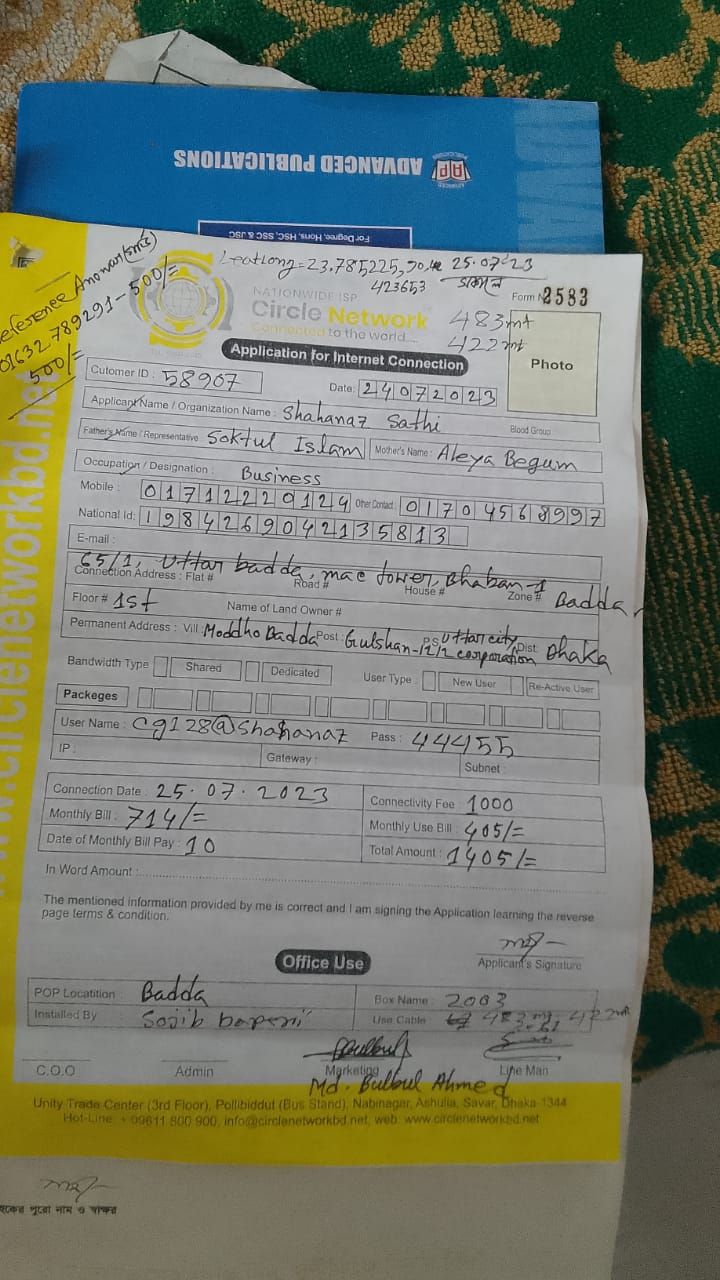 ADVANCED PUBLICATIONS
For Degree, Hons, HSC, SSC & JSC
Reference Anowar
01632-789291-500/=
500/=
Leatlong=23.785225,90.42 25.07.23
423653
NATIONWIDE ISP
Circle Network
Connected to the world....
Form N 2583
483mt
422mt
Application for Internet Connection
Photo
Cutomer ID : 58907
Date: 24072023
Applicant Name / Organization Name : Shahanaz Sathi
Blood Group
Father's Name / Representative Soktul Islam Mother's Name : Aleya Begum
Occupation / Designation : Business
Mobile : 01712220124 Other Contact : 01704568997
National Id: 1984269042135813
E-mail :
65/1, Uttar badda, mac tower, Bhaban-1 Badda
Connection Address : Flat # Road # House # Zone #
Floor # 1st Name of Land Owner #
Permanent Address : Vill: Moddho Badda Post : Gulshan-1212 P.S Uttar city corporation Dist: Dhaka
Bandwidth Type Shared Dedicated User Type : New User Re-Active User
Packeges
User Name : cg128@shahanaz Pass : 44455
IP : Gateway : Subnet :
Connection Date : 25.07.2023 Connectivity Fee : 1000
Monthly Bill : 714/= Monthly Use Bill : 405/=
Date of Monthly Bill Pay : 10 Total Amount : 1405/=
In Word Amount :
The mentioned information provided by me is correct and I am signing the Application learning the reverse
page terms & condition.
Applicant's Signature
Office Use
POP Locatition : Badda Box Name : 2003
Installed By Sojib bapari Use Cable 483 mt, 422 mt
C.O.O Admin Marketing Line Man
Md. Bulbul Ahmed
Unity Trade Center (3rd Floor), Pollibiddut (Bus Stand), Nabinagar, Ashulia, Savar, Dhaka-1344
Hot-Line: + 09611 800 900, info@circlenetworkbd.net, web: www.circlenetworkbd.net
www.circlenetworkbd.net
পুরো নাম ও স্বাক্ষর